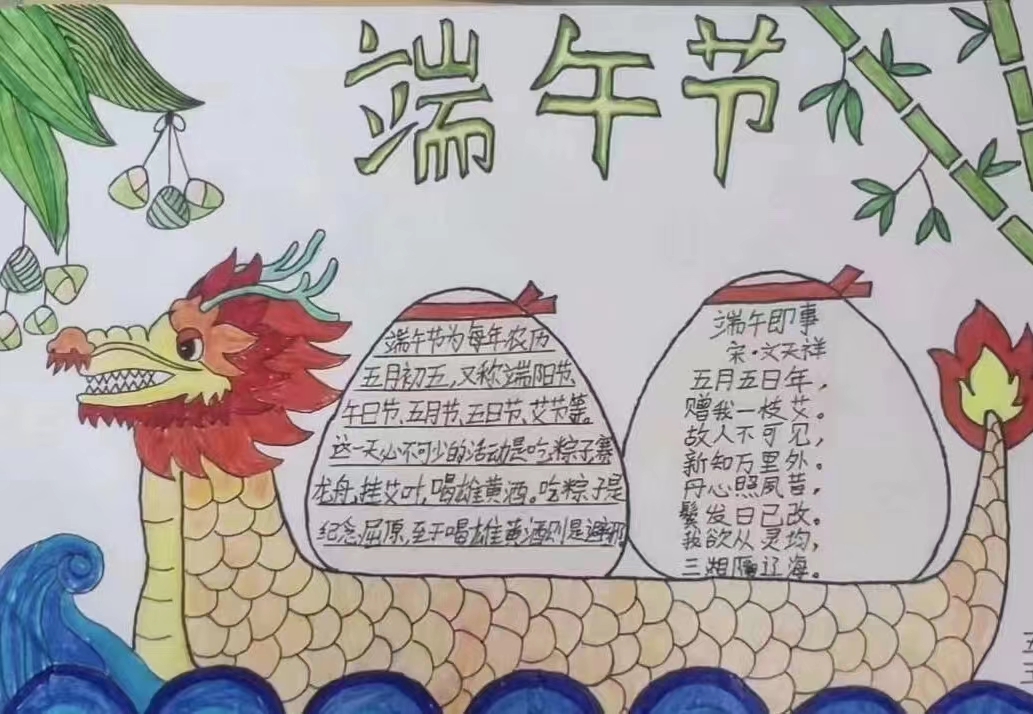 端午节
端午节为每年农历
五月初五,又称端阳节、
午日节、五月节、五日节、艾节等。
这一天必不可少的活动是吃粽子赛
龙舟,挂艾叶,喝雄黄酒。吃粽子是
纪念屈原,至于喝雄黄酒则是避邪
端午即事
宋·文天祥
五月五日年,
赠我一枝艾。
故人不可见,
新知万里外。
丹心照夙昔,
鬓发日已改。
我欲从灵均,
三湘隔辽海。